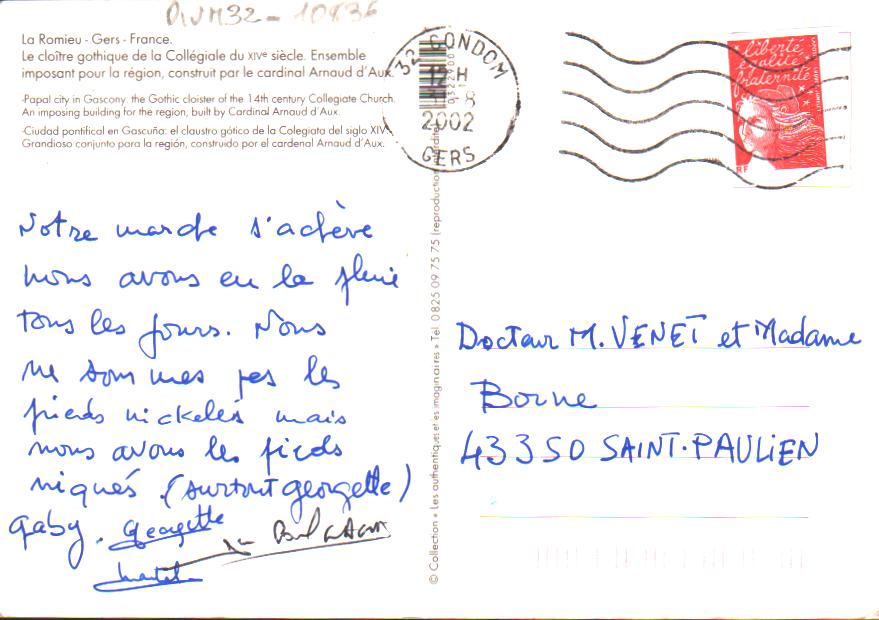 DIVM32-10836
La Romieu - Gers - France.
Le cloître gothique de la Collégiale du XIVe siècle. Ensemble
imposant pour la région, construit par le cardinal Arnaud d'Aux.
-Papal city in Gascony. the Gothic cloister of the 14th century Collegiate Church.
An imposing building for the region, built by Cardinal Arnaud d'Aux.
-Ciudad pontifical en Gascuña: el claustro gótico de la Colegiata del siglo XIV.
Grandioso conjunto para la región, construido por el cardenal Arnaud d'Aux.
32 CONDOM
12 H
8
2002
GERS
liberté
égalité
fraternité
RF
Notre marche s'achève
nous avons eu la pluie
tous les jours. Nous
ne sommes pas les
pieds nickelés mais
nous avons les pieds
niqués (surtout georgette)
Gaby. Georgette
© Collection « Les authentiques et les imaginaires » Tél. 0 825 09 75 75 (reproduction interdite)
Docteur M. VENET et Madame
Borne
43350 SAINT-PAULIEN